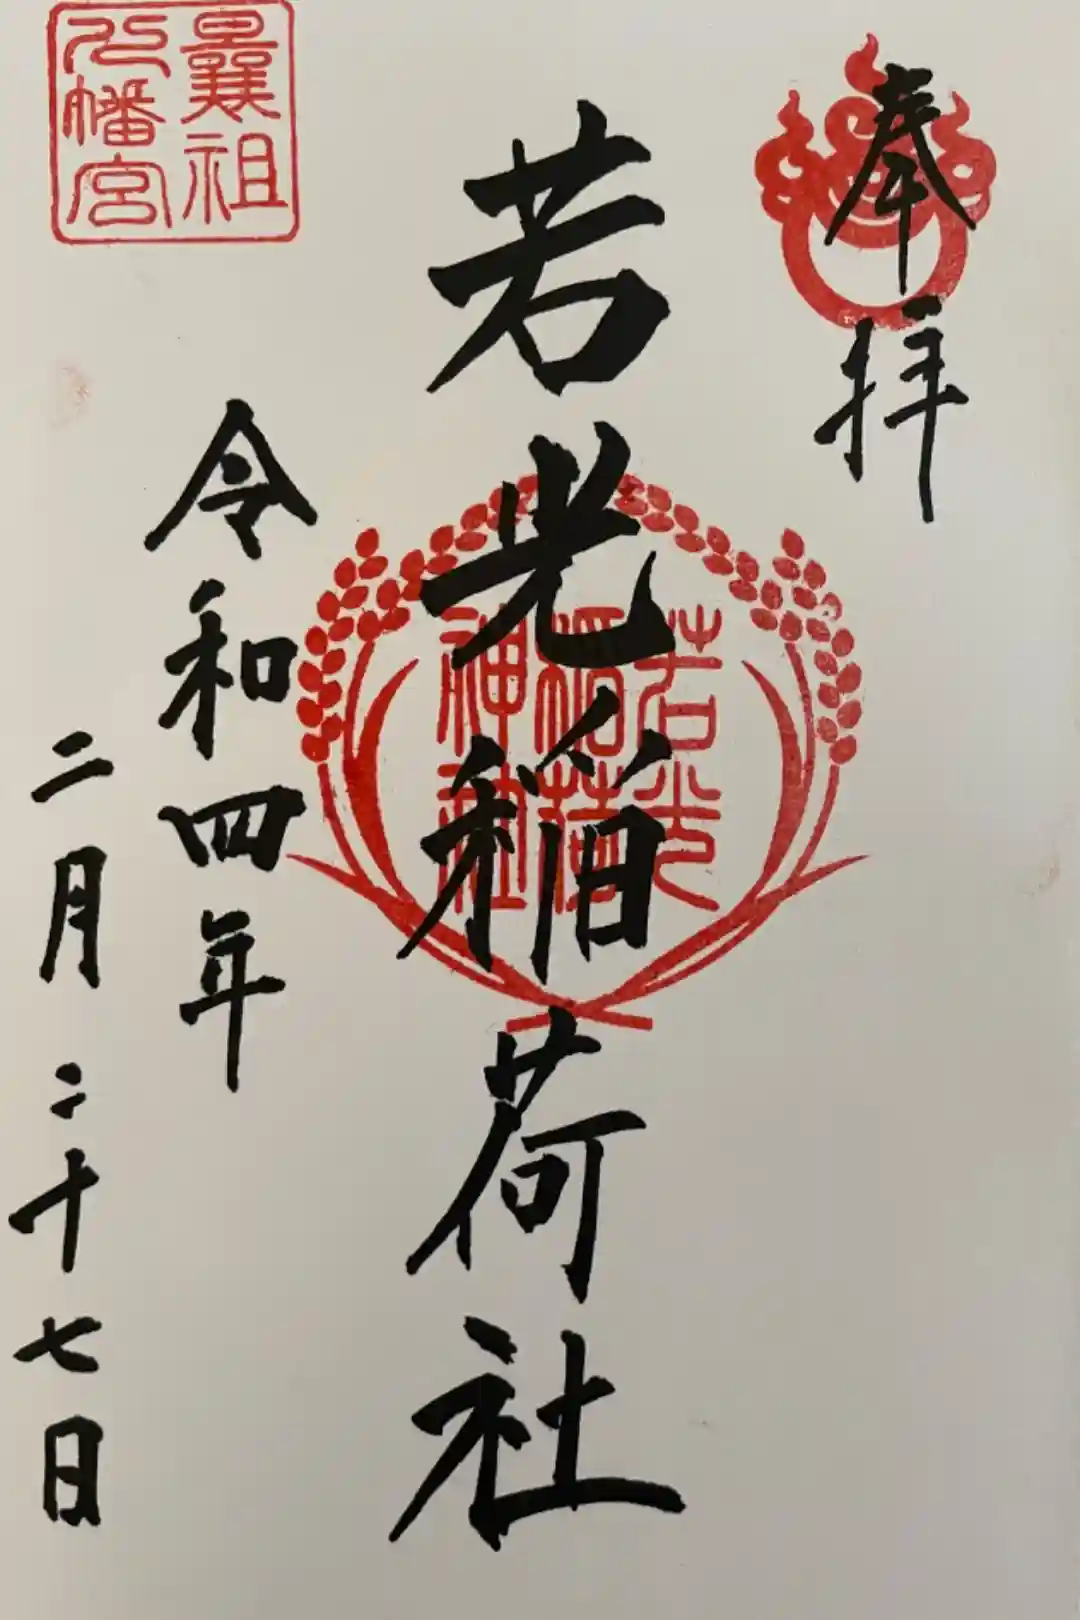 奉拝
若光稲荷社
若光
稲荷
神社
令和四年
二月二十七日
曩祖
八幡宮